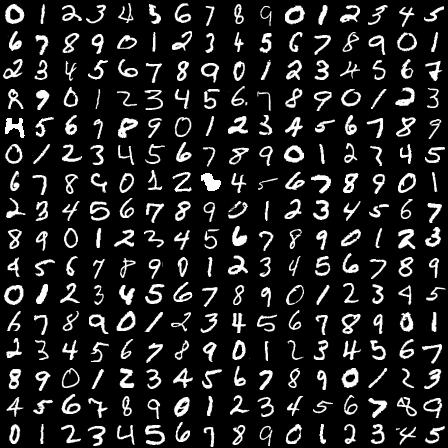 0 1 2 3 4 5 6 7 8 9 0 1 2 3 4 5
6 7 8 9 0 1 2 3 4 5 6 7 8 9 0 1
2 3 4 5 6 7 8 9 0 1 2 3 4 5 6 7
8 9 0 1 2 3 4 5 6 7 8 9 0 1 2 3
4 5 6 9 8 9 0 1 2 3 4 5 6 7 8 9
0 1 2 3 4 5 6 7 8 9 0 1 2 3 4 5
6 7 8 9 0 1 2 4 5 6 7 8 9 0 1
2 3 4 5 6 7 8 9 0 1 2 3 4 5 6 7
8 9 0 1 2 3 4 5 6 7 8 9 0 1 2 3
4 5 6 7 8 9 0 1 2 3 4 5 6 7 8 9
0 1 2 3 4 5 6 7 8 9 0 1 2 3 4 5
6 7 8 9 0 1 2 3 4 5 6 7 8 9 0 1
2 3 4 5 6 7 8 9 0 1 2 3 4 5 6 7
8 9 0 1 2 3 4 5 6 7 8 9 0 1 2 3
4 5 6 7 8 9 0 1 2 3 4 5 6 7 8 9
0 1 2 3 4 5 6 7 8 9 0 1 2 3 4 5